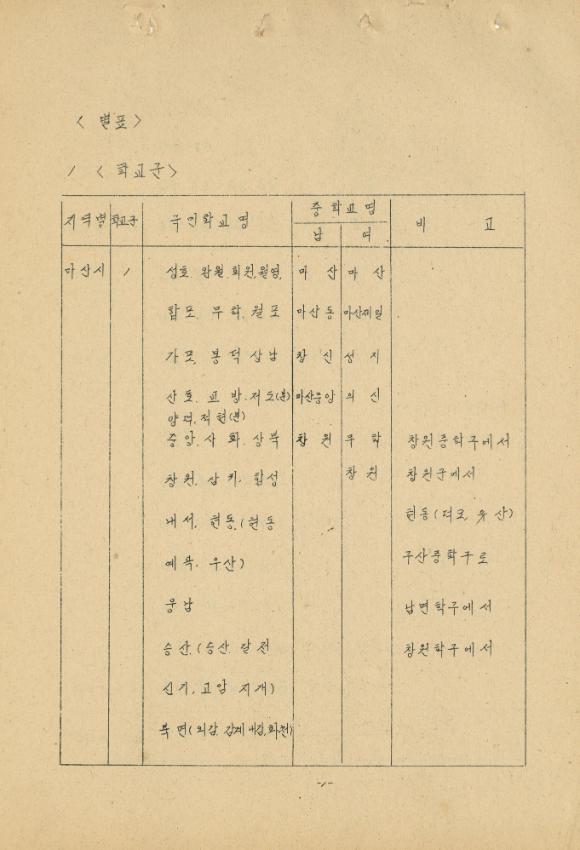 < 별표 >
1 < 학교군 >
지역별 학교군 국민학교명 중학교명 비 고
남 여
마산시 1 성호. 완월. 회원. 월영. 마산 마산
합포. 무학. 월포 마산동 마산제일
가포. 봉덕 삼남 창신 성지
산호. 교방. 저도(분) 마산중앙 의신
양덕. 적현(분)
중앙. 사화. 상북 창원 무학 창원중학구에서
창원. 삼키. 합성 창원 창원군에서
내서. 현동. (현동 현동(덕모, 우산)
예곡. 우산) 구산중학구로
웅남 남면학구에서
승산. (승산. 달전 창원학구에서
신기. 고암 지개)
북면(외감. 감계 내감. 화천)
-1-